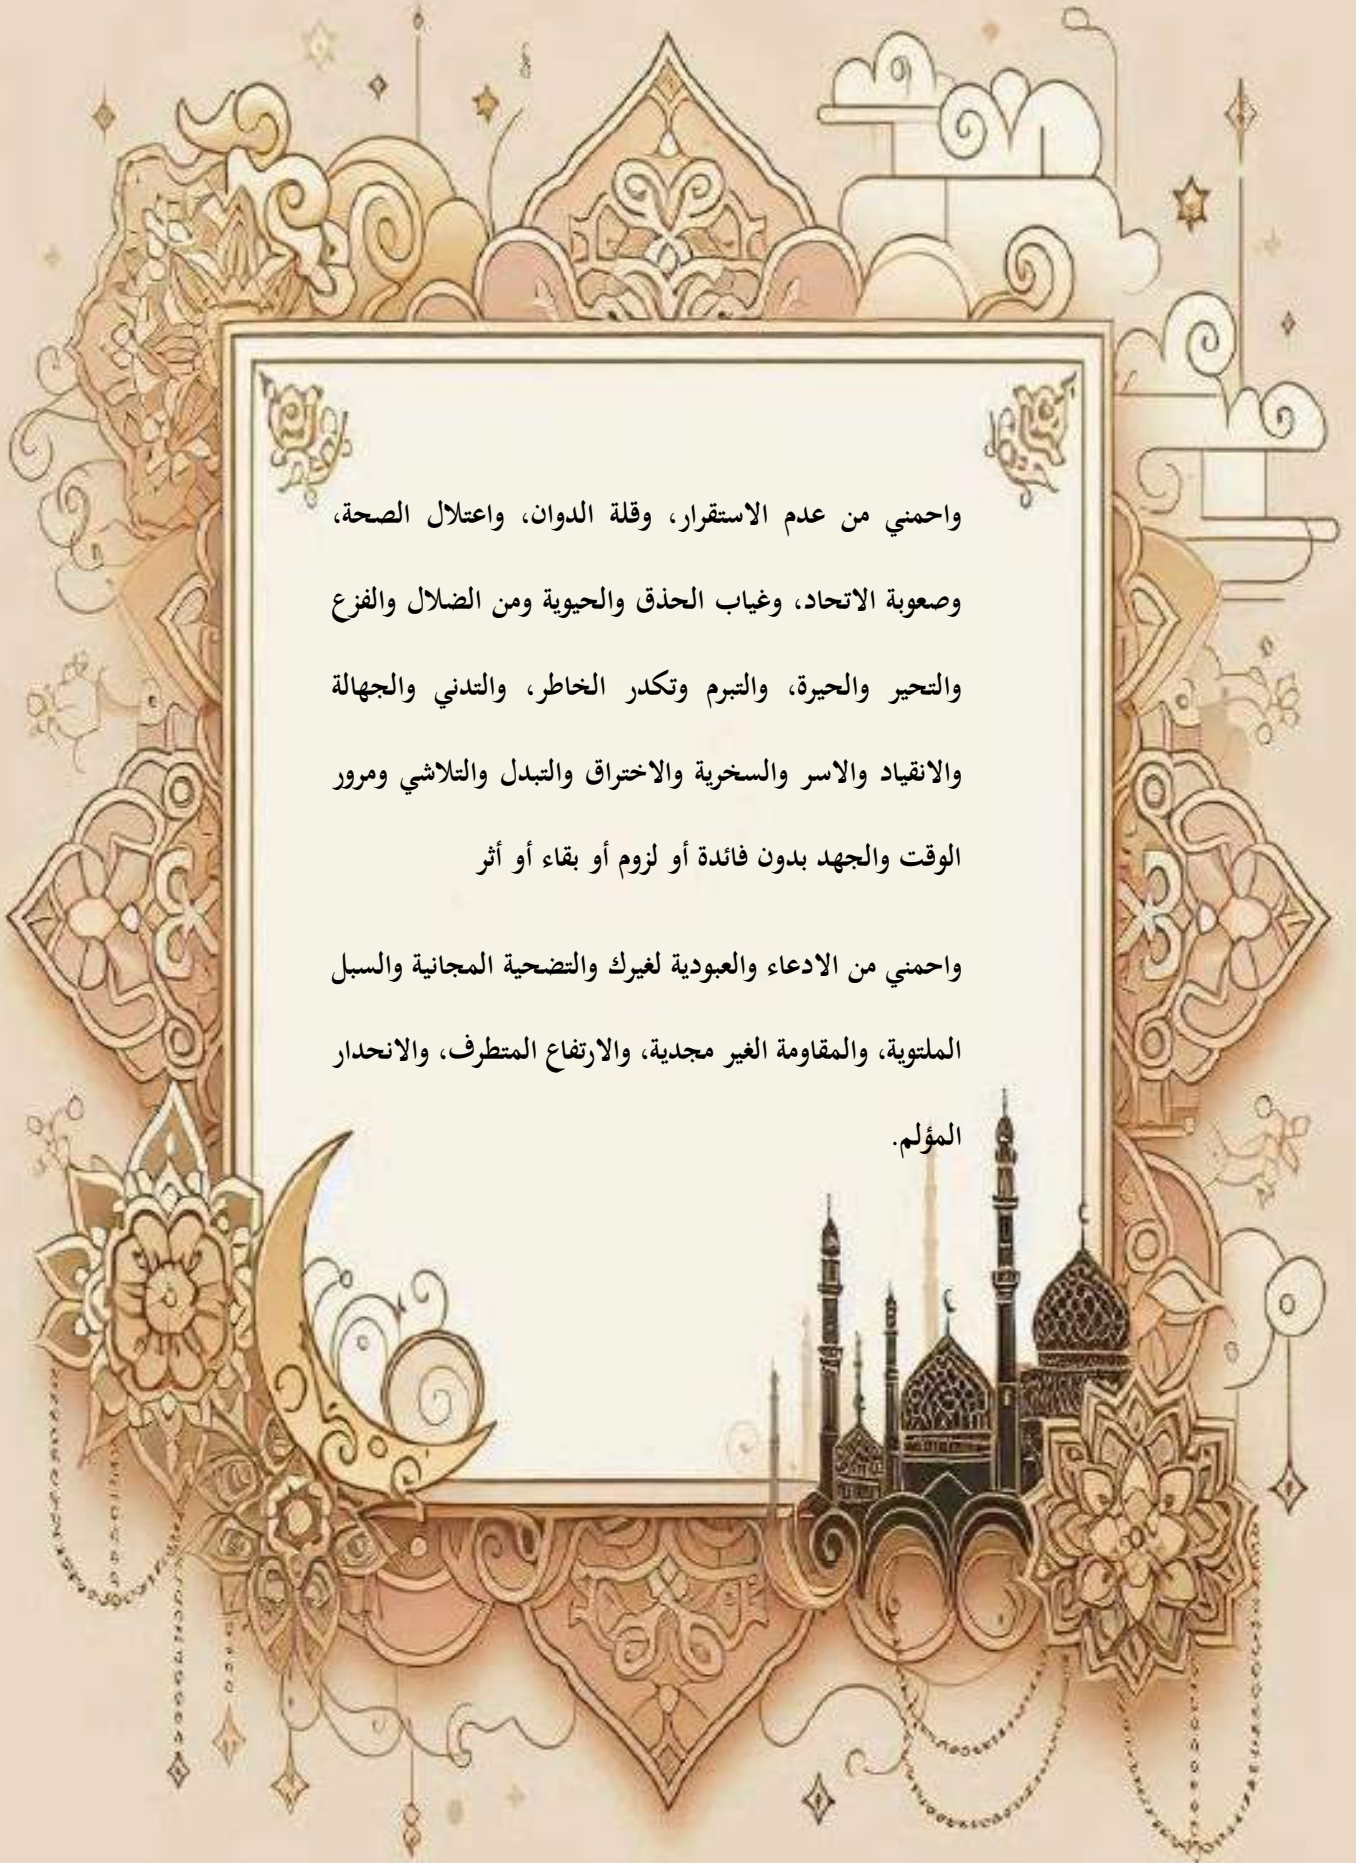 واحمني من عدم الاستقرار، وقلة الدوان، واعتلال الصحة،
وصعوبة الاتحاد، وغياب الحذق والحيوية ومن الضلال والفزع
والتحير والحيرة، والتبرم وتكدر الخاطر، والتدني والجهالة
والانقياد والاسر والسخرية والاختراق والتبدل والتلاشي ومرور
الوقت والجهد بدون فائدة أو لزوم أو بقاء أو أثر
واحمني من الادعاء والعبودية لغيرك والتضحية المجانية والسبل
الملتوية، والمقاومة الغير مجدية، والارتفاع المتطرف، والانحدار
المؤلم.